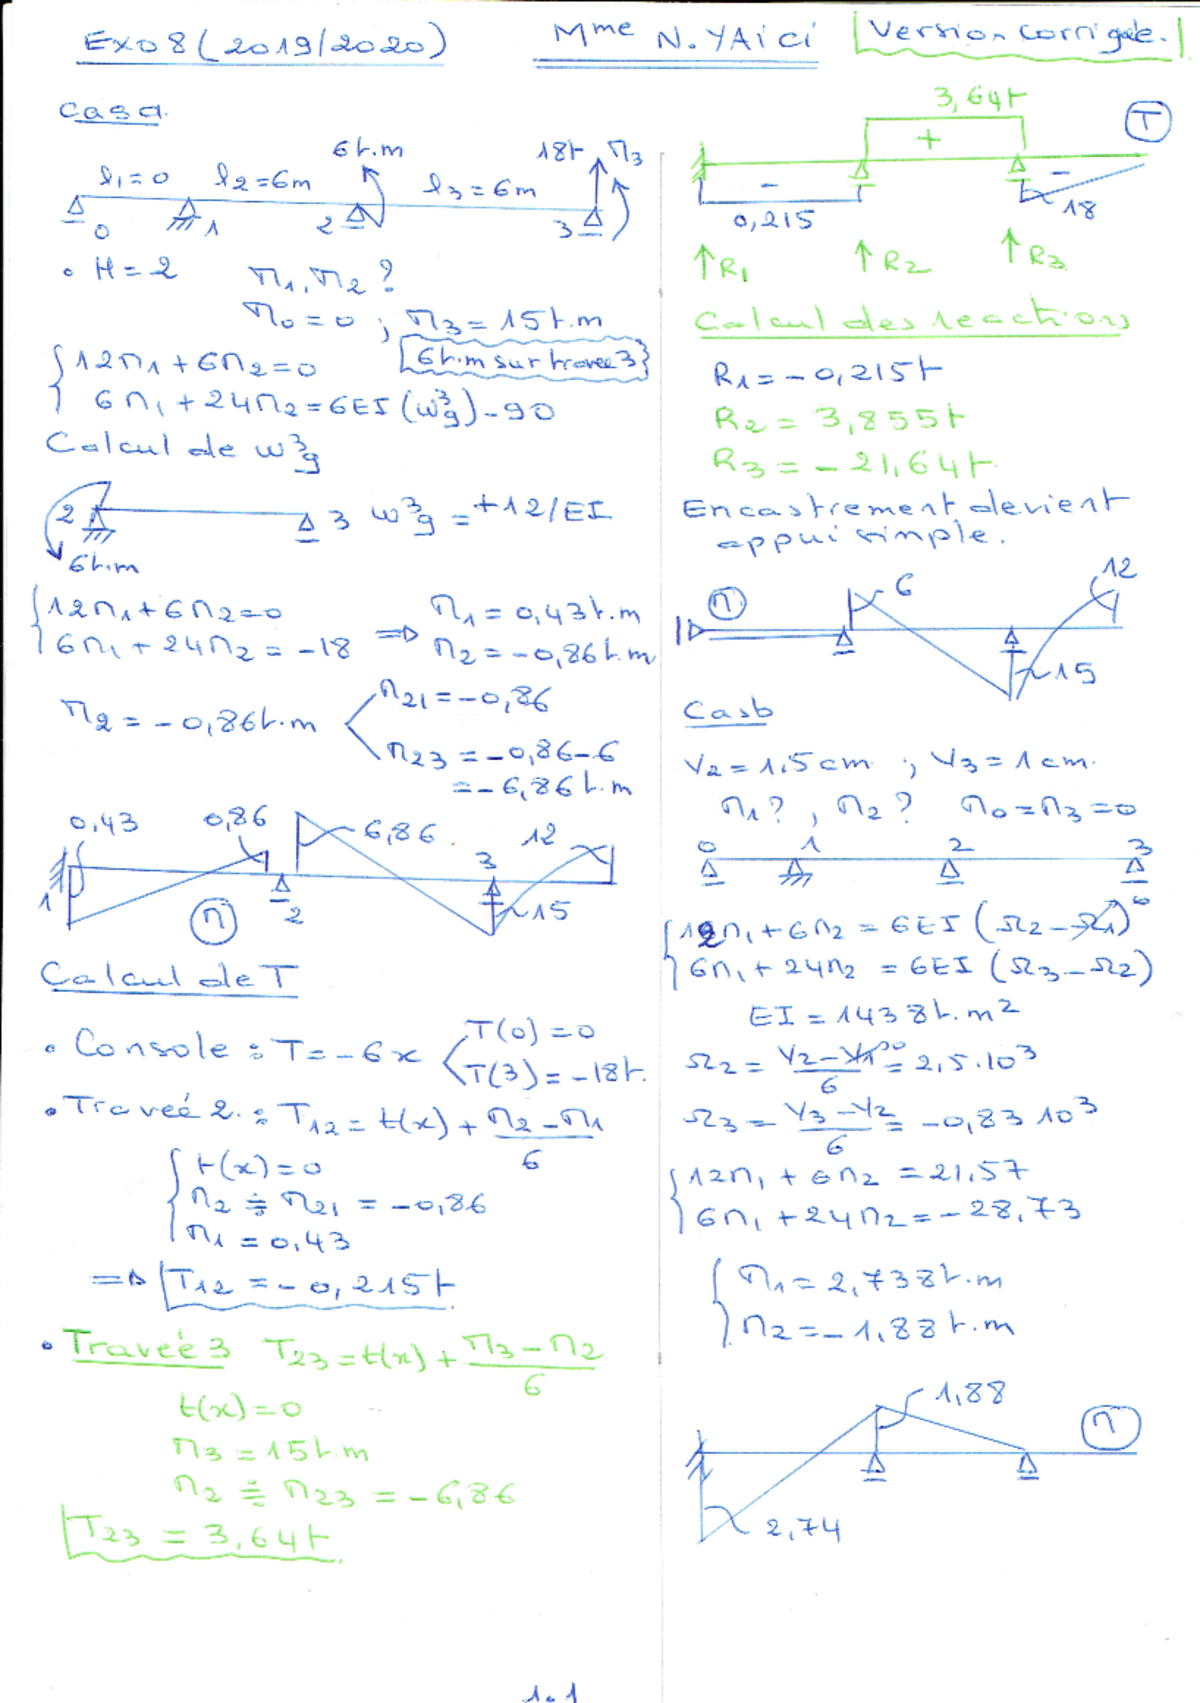 Exo 8 (2019/2020)
Mme N. YAiCi
Version corrigée.
Cas a.
l1=0 l2=6m 6t.m l3=6m 18t M3
0 1 2 3
• H=2 M1, M2?
M0=0 ; M3=15t.m
6t.m sur travée 3
12M1+6M2=0
6M1+24M2=6EI(ω3g)-90
Calcul de ω3g
2 3 ω3g=+12/EI
6t.m
12M1+6M2=0
6M1+24M2=-18
=> M1=0,43t.m
M2=-0,86t.m
M2=-0,86t.m
M21=-0,86
M23=-0,86-6
=-6,86t.m
0,43 0,86 6,86 3 12
1 M 2 15
Calcul de T
• Console : T=-6x
T(0)=0
T(3)=-18t.
• Traveé 2. : T12=t(x)+M2-M1
6
t(x)=0
M2 ≑ M21=-0,86
M1=0,43
=> T12=-0,215t
• Traveé 3 T23=t(x)+M3-M2
6
t(x)=0
M3=15t.m
M2 ≑ M23=-6,86
T23=3,64t
3,64t T
+
- -
0,215 18
↑R1 ↑R2 ↑R3
Calcul des reactions
R1=-0,215t
R2=3,855t
R3=-21,64t
Encastrement devient
appui simple.
M 6 12
15
Cas b
V2=1,5cm ; V3=1cm.
M1? , M2? M0=M3=0
0 1 2 3
12M1+6M2=6EI(Ω2-Ω1)0
6M1+24M2=6EI(Ω3-Ω2)
EI=1438t.m2
Ω2=V2-V1=0=2,5.103
6
Ω3=V3-V2=-0,83 103
6
12M1+6M2=21,57
6M1+24M2=-28,73
M1=2,738t.m
M2=-1,88t.m
1,88 M
2,74
1.1